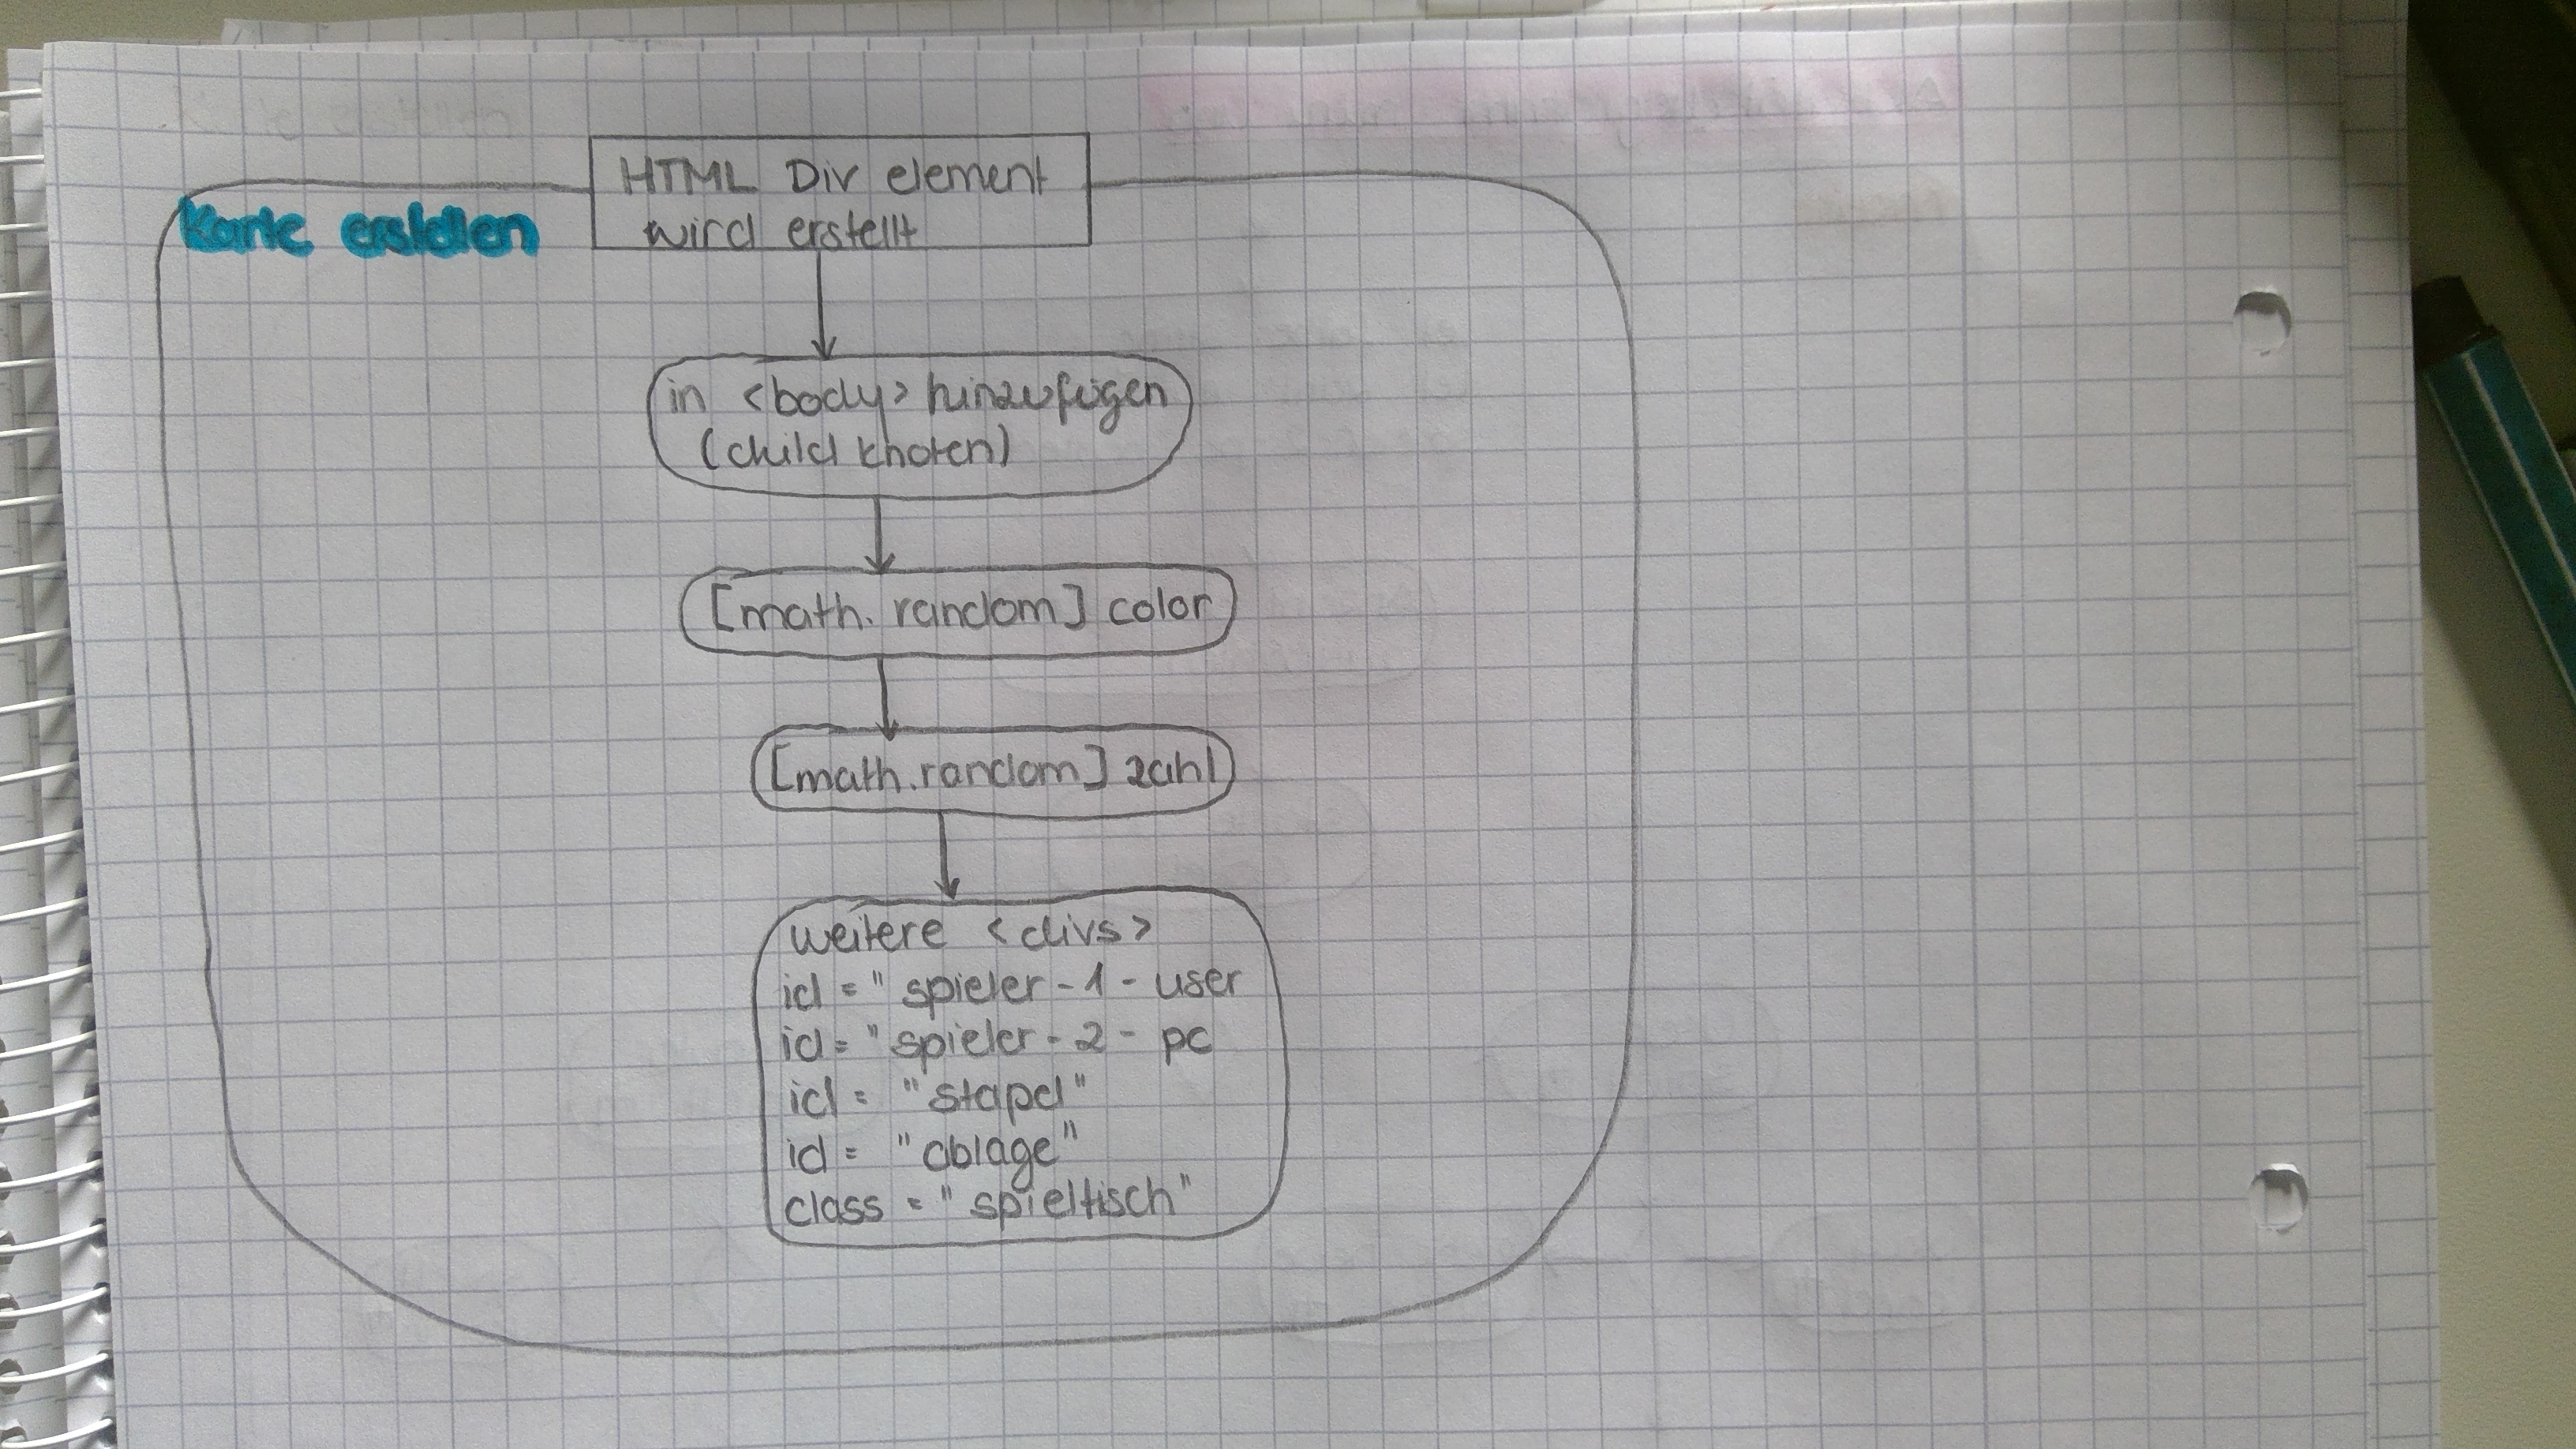 HTML Div element
wird erstellt
Karte erstellen
in <body> hinzufügen
(child knoten)
[math. random] color
[math.random] zahl
weitere <divs>
id = " spieler - 1 - user
id = " spieler - 2 - pc
id = "stapel"
id = "ablage"
class = " spieltisch"